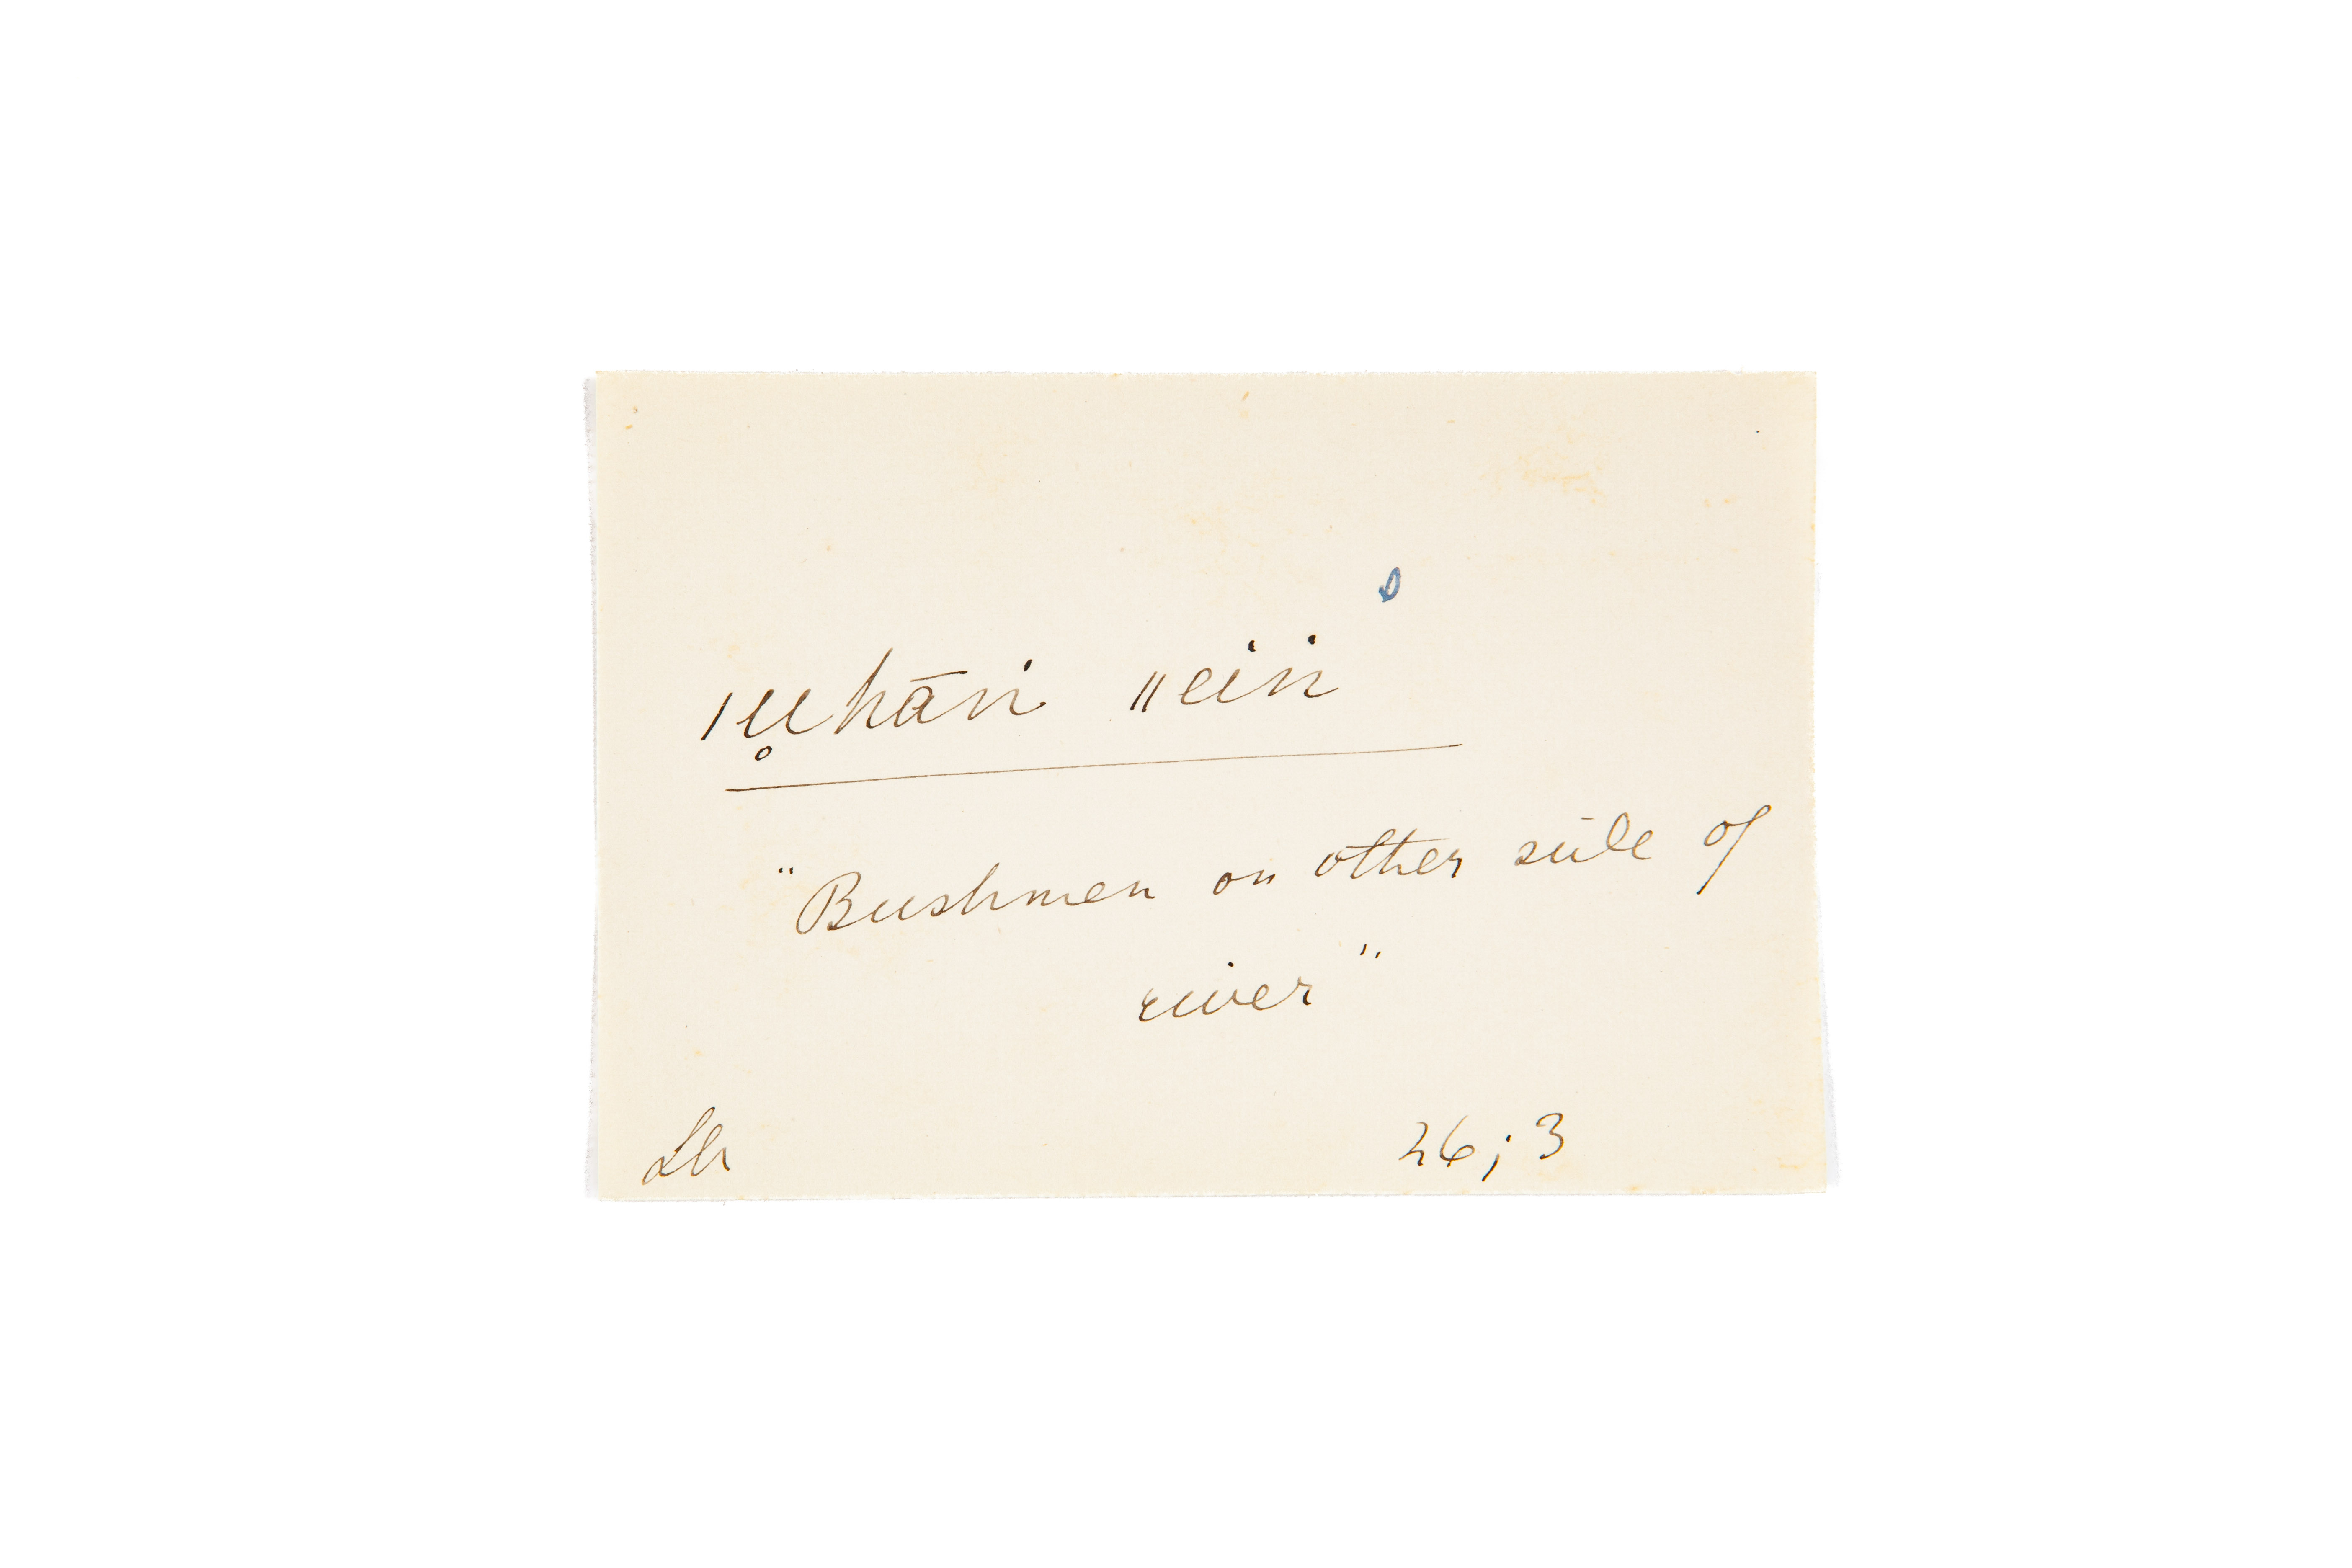 ǀu̥hāń ǁeiń
"Bushmen on other side of
river"
26; 3